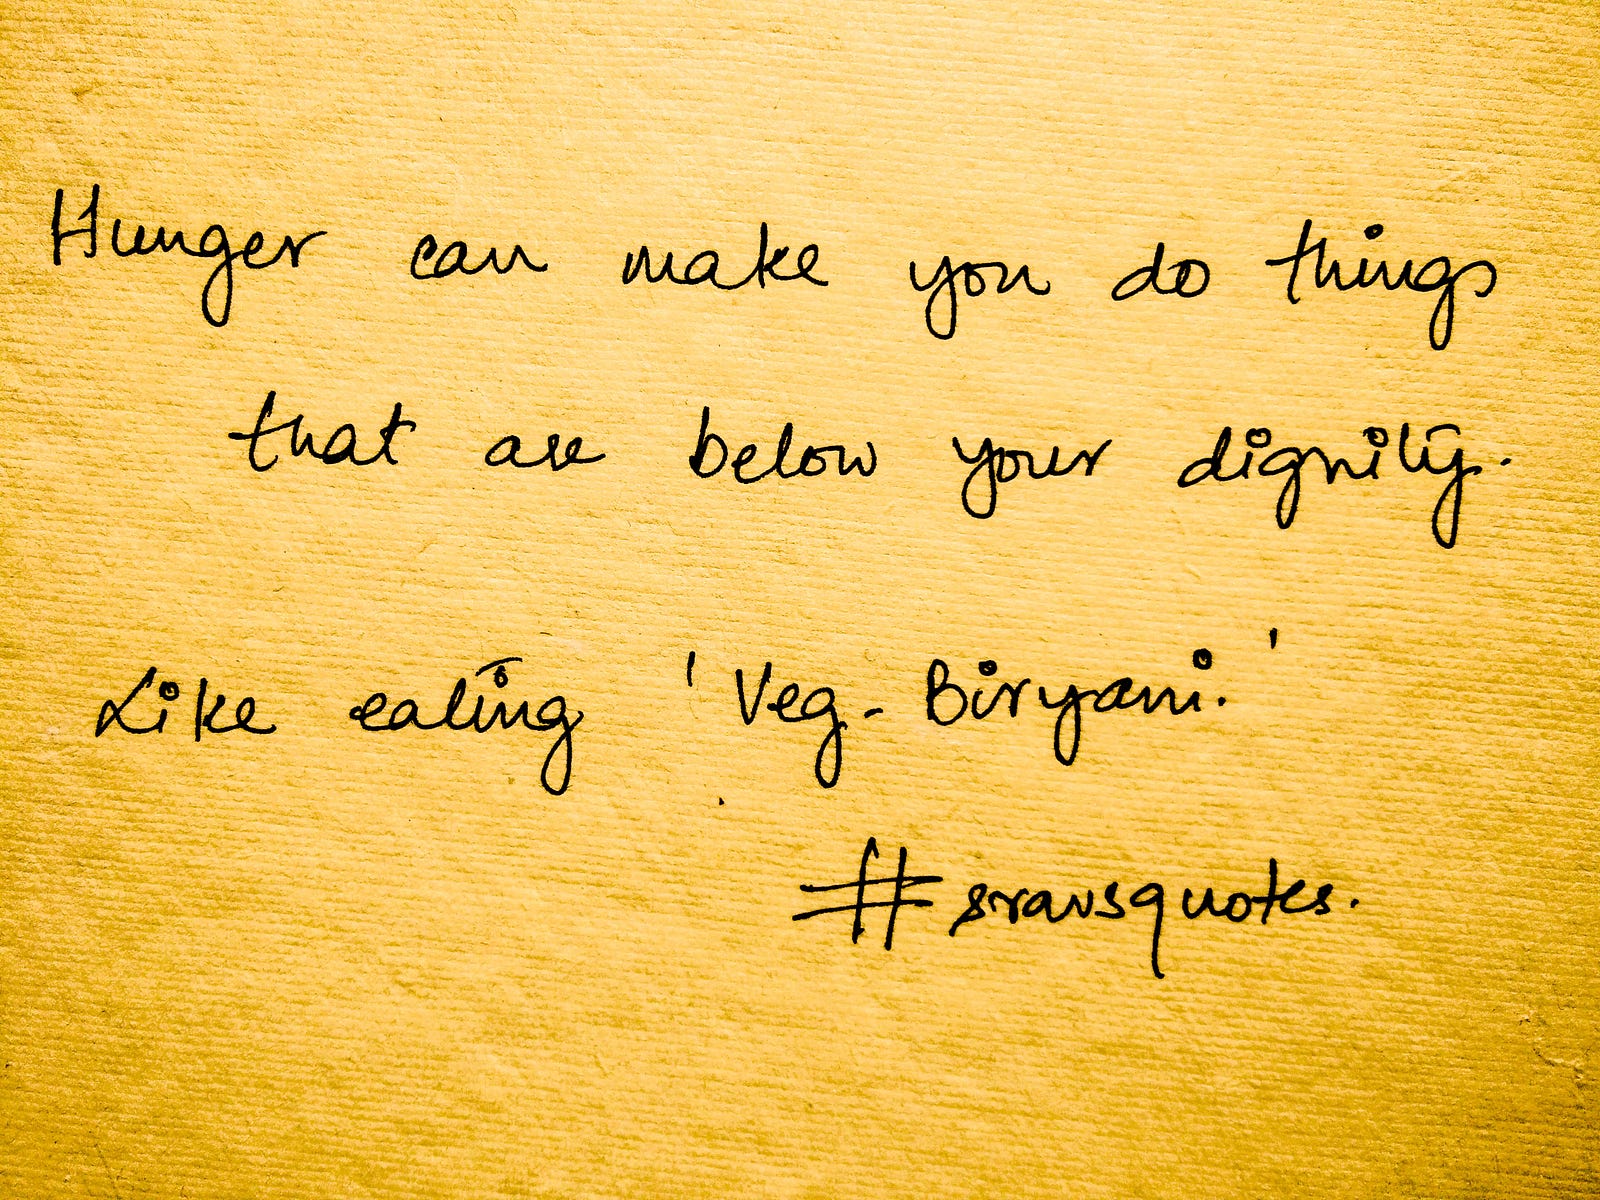 Hunger can make you do things
that are below your dignity.
Like eating 'Veg-Biryani.'
#sravsquotes.